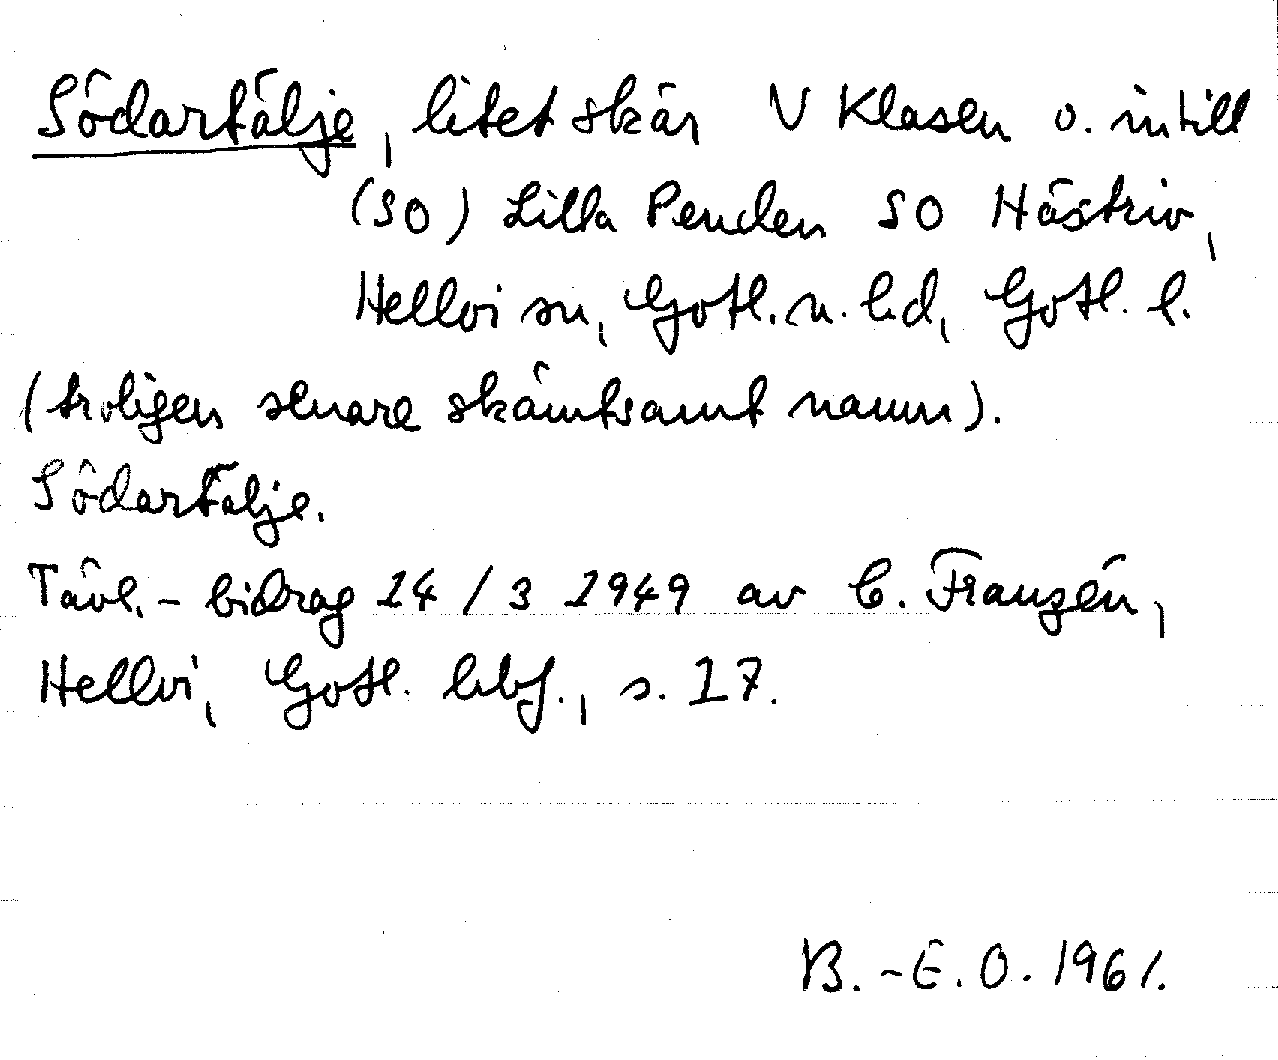 Södartälje, litet skär V Klasen o. intill
(SO) Lilla Penden SO Hästriv,
Hellvi sn, Gotl. n. hd, Gotl. l.
(troligen senare skämtsamt namn).
Södartälje.
Tävl.-bidrag 14/3 1949 av C. Franzén,
Hellvi, Gotl. hbf., s. 17.
B.-E.O. 1961.